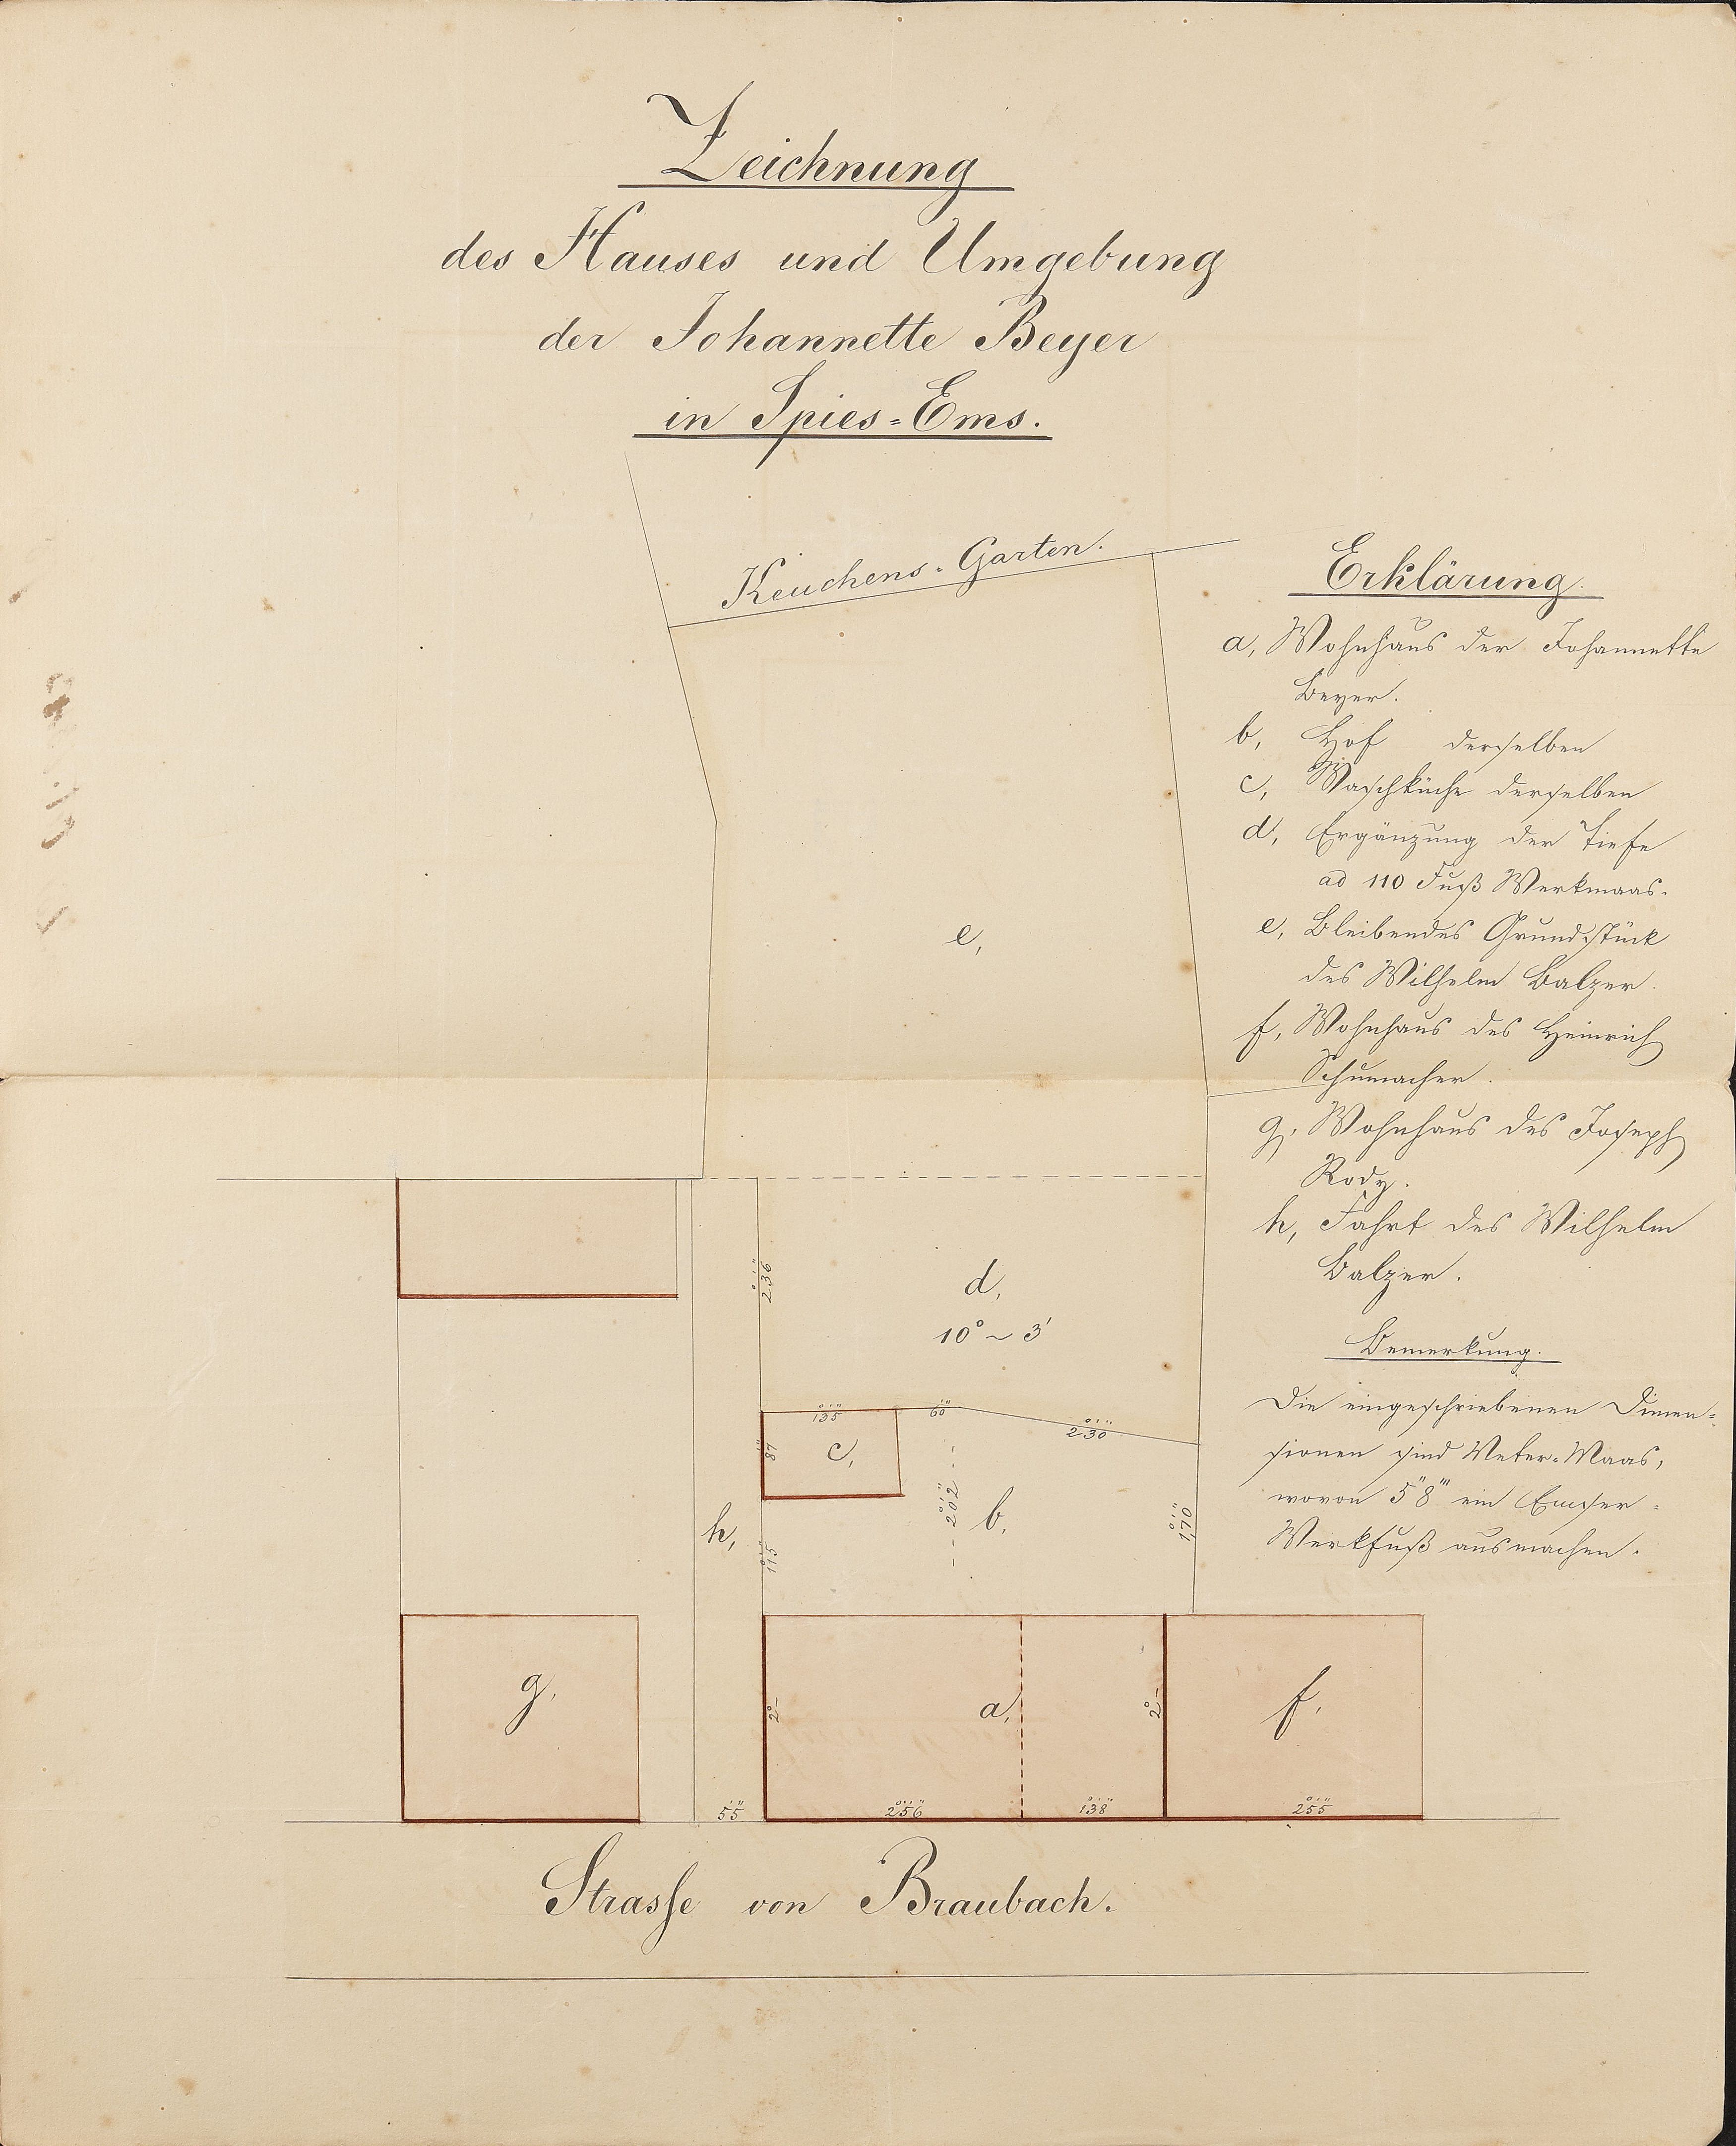 Zeichnung
des Hauses und Umgebung
der Johannette Beyer
in Spies-Ems.
Keuchens-Garten.
Erklärung.
a, Wohnhaus der Johannette
Beyer.
b, Hof derselben
c, Waschküche derselben
d, Ergänzung der Tiefe
ad 110 Fuß Werkmaas.
e, Bleibendes Grundstück
des Wilhelm Balzer.
f, Wohnhaus des Heinrich
Schumacher.
g, Wohnhaus des Joseph
Rody.
h, Fahrt des Wilhelm
Balzer.
Bemerkung.
Die eingeschriebenen Dimen=
sionen sind Meter-Maas,
wovon 5" 8''' ein Emser=
Werkfuß ausmachen.
e,
236
d,
10° ~ 3'
135
60
230
87
c,
202
b,
170
h,
115
g,
2°-
a,
2°-
f.
55
256
138
255
Strasse von Braubach.